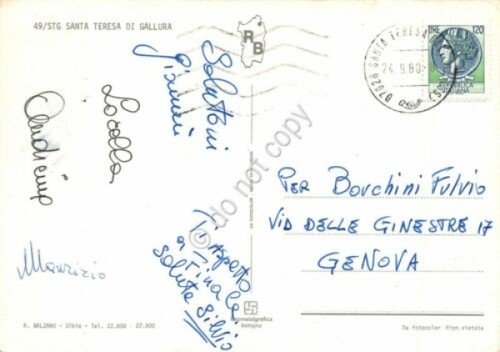 49/STG SANTA TERESA DI GALLURA
RB
07028 SANTA TERESA
24.9.80
(SS)
120
Salutoni
Gianni
Lorella
Maurizio
Ti aspetto
a Finale
Saluta Silvio
PER BORCHINI FULVIO
VIA DELLE GINESTRE 17
GENOVA
do not copy
fotometalgrafica
bologna
R. BALZANO - Olbia - Tel. 22.800 - 22.900
Da fotocolor Ripr. vietata